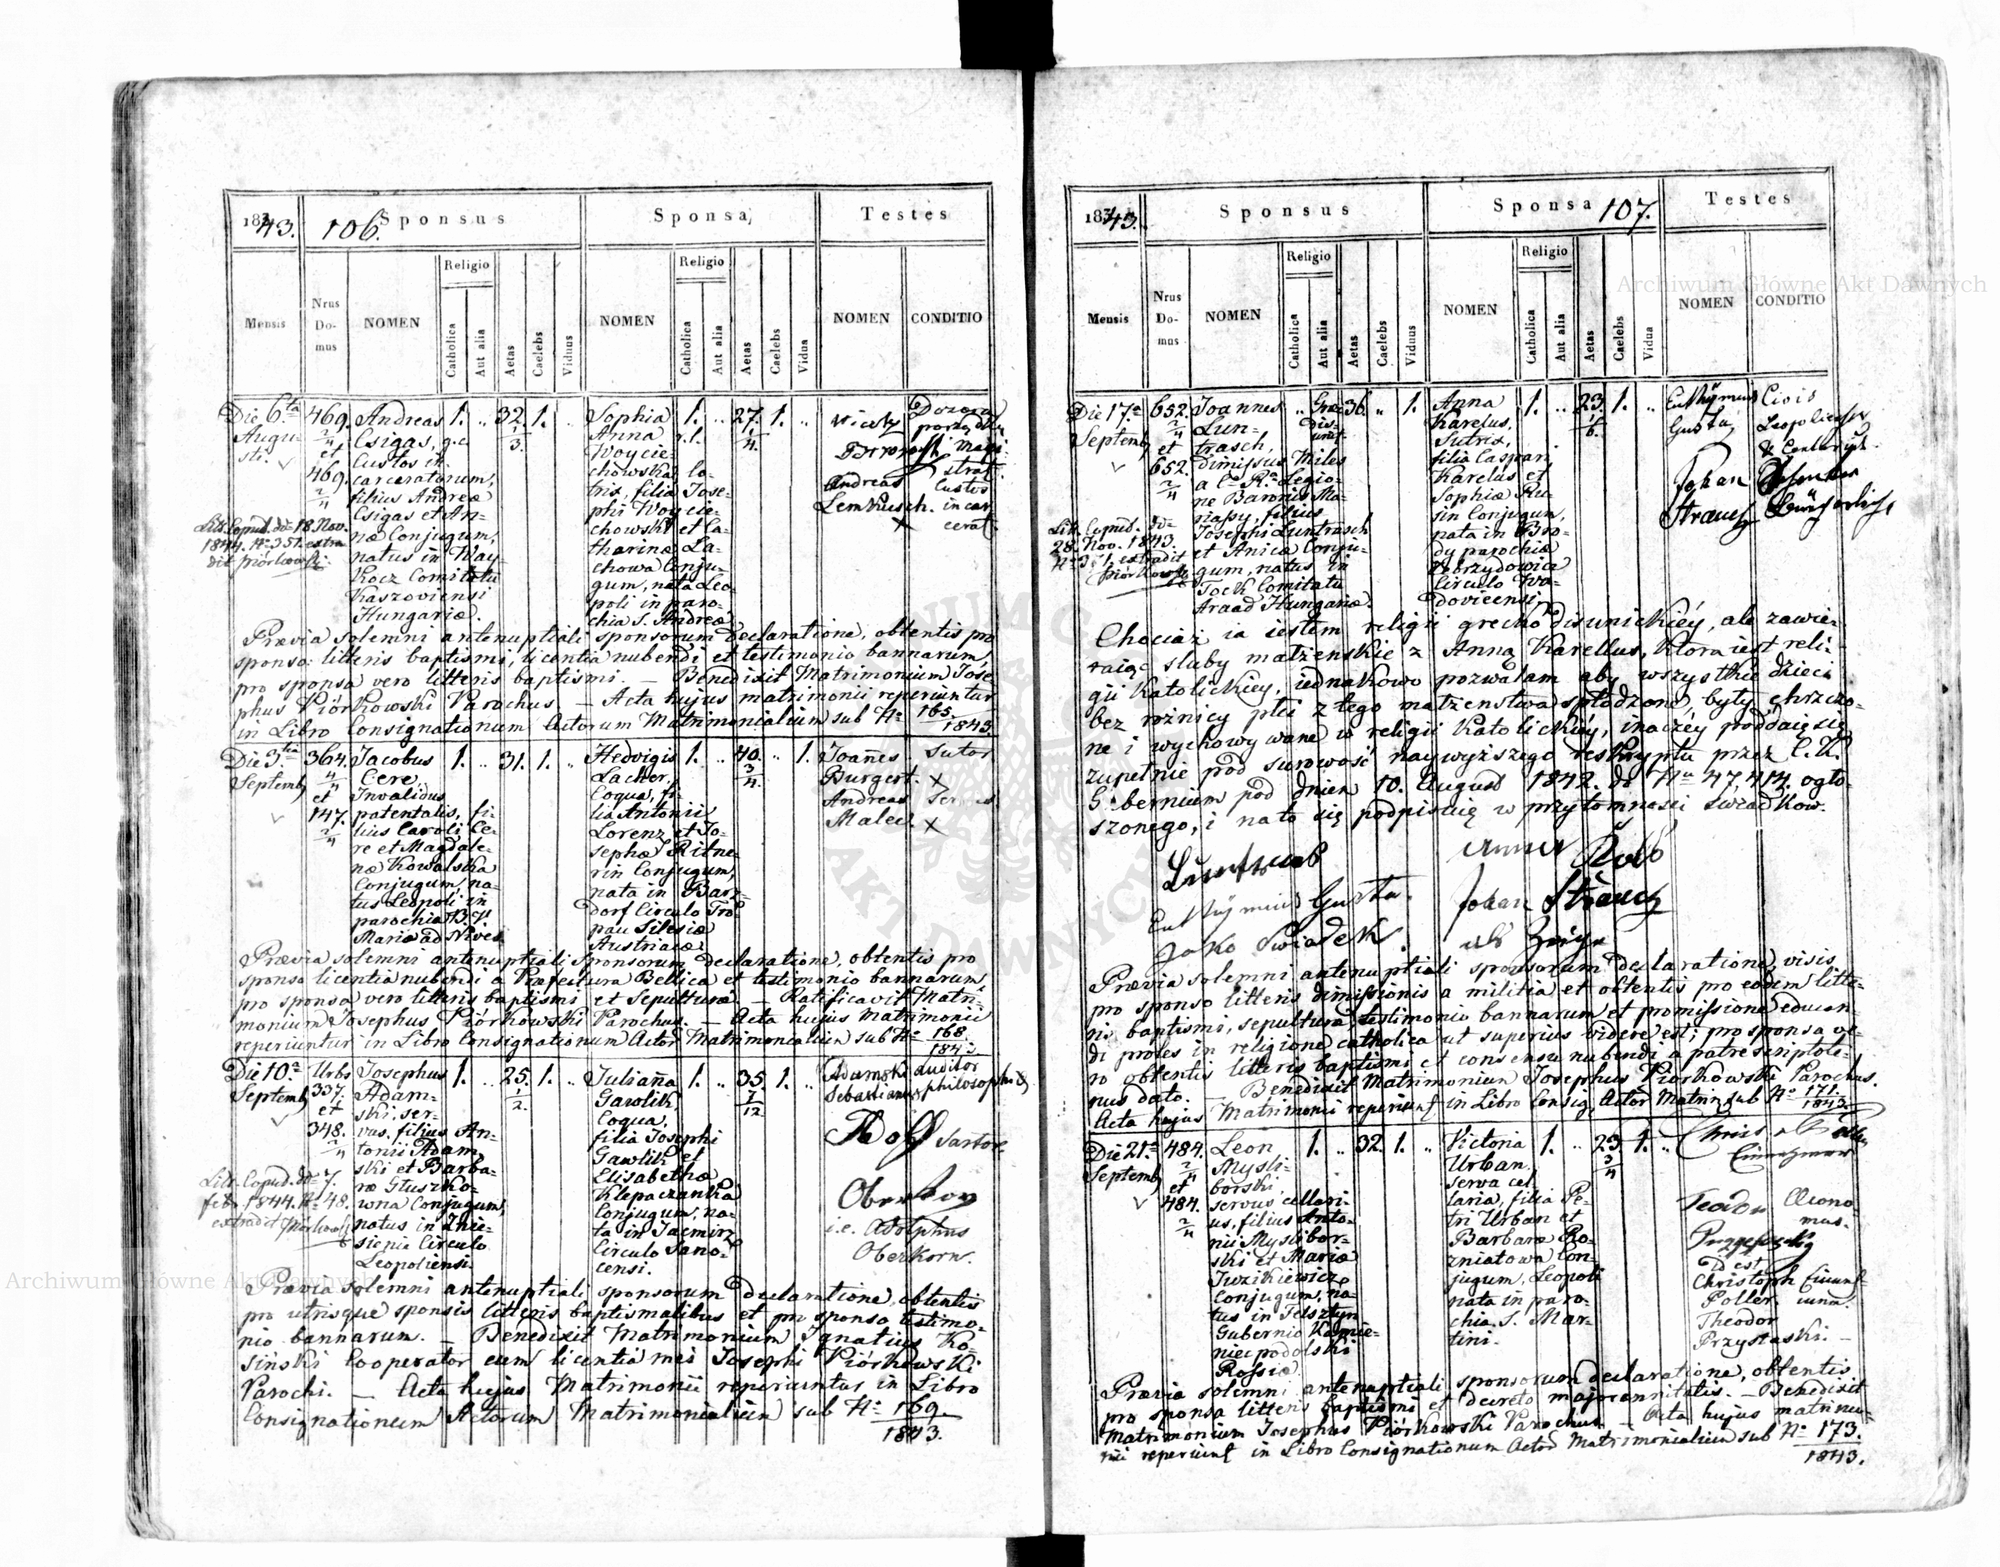 1843. 106. Sponsus Sponsa Testes
Mensis
Nrus Do- mus
NOMEN
Religio
Catholica
Aut alia
Aetas
Caelebs
Viduus
NOMEN
Religio
Catholica
Aut alia
Aetas
Caelebs
Vidua
NOMEN
CONDITIO
Die 6ta
Augu
sti.
469.
2/4
et
469.
2/4
Andreas
Csigas, g.c.
Custos
carceratorum,
filius Andreæ
Csigas et An-
næ Conjugum,
natus in Way-
kocz Comitatu
Kaszoviensi
Hungariæ.
1. „ 32. 1/3. 1. „
Sophia
Anna
Woycie-
chowska
filia Jose-
phi Woycie-
chowski et Ca-
tharinæ La-
chowa Conju-
gum, nata Leo-
poli in paro-
chia S. Andreæ
1. „ 27. 1/4. 1. „
Andreas
Lemkusch.
×
Custos
incar
cerat.
Litt. Copul. dto 18. Nov.
1844. No 351. extra
dit Piórkowski.
Prævia solemni antenuptiali sponsorum declaratione, obtentis pro
sponso litteris baptismi, licentia nubendi et testimonio bannarum,
pro sponsa vero litteris baptismi. — Benedixit Matrimonium Jose
phus Piórkowski Parochus. — Acta hujus matrimonii reperiuntur
in Libro Consignationum Actorum Matrimonialium sub No 165.
1843.
Die 3tia
Septemb
364.
4/4
et
147.
2/4
Jacobus
Cere,
Invalidus
patentalis, fi-
lius Caroli Ce-
re et Magdale-
næ Kowalska
Conjugum, na-
tus Leopoli in
parochia B.V.
Mariæ ad Nives
1. „ 31. 1. „
Hedvigis
Lacher,
Coqua, fi-
lia Antonii
Lorenz et Jo-
sephæ Ritne-
rin Conjugum,
nata in Barz-
dorf Circulo Tro-
pau Silesiæ
Austriacæ
1. „ 40. 3/4. „ 1.
Joañes
Burgert. ×
Andreas
Malec. ×
Sutor
Prævia solemni antenuptiali sponsorum declaratione, obtentis pro
sponso licentia nubendi a Præfectura Bellica et testimonio bannarum,
pro sponsa vero litteris baptismi et sepulturæ. — Ratificavit Matri-
monium Josephus Piórkowski Parochus. — Acta hujus Matrimonii
reperiuntur in Libro Consignationum Actor Matrimonialium sub No 168.
1843.
Die 10a
Septemb
Urbs
337.
et
348.
2/4
Josephus
Adam-
ski, ser-
vus, filius An-
tonii Adam-
ski et Barba-
ræ Głuszko-
wna Conjugum,
natus in Znie-
sienie Circulo
Leopoliensi.
1. „ 25. 1/2. 1. „
Juliaña
Gawlik,
Coqua,
filia Josephi
Gawlik et
Elisabethæ
Klepaczanka
Conjugum, na-
ta in Jacmirz
Circulo Sano-
censi.
1. „ 35. 7/12 1. „
Adamski
Sebastianus
Auditor
philosophiæ
Adolf
Sartor.
Oberkorn
i.e. Adolphus
Oberkorn.
Litt. Copul. dto 7.
feb. 1844. No 48.
extradit Piórkowski
Prævia solemni antenuptiali sponsorum declaratione, obtentis
pro utrisque sponsis litteris baptismalibus et pro sponso testimo-
nio bannarum. — Benedixit Matrimonium Ignatius Ko-
siński Cooperator cum licentia mei Josephi Piórkowski
Parochi. — Acta hujus Matrimonii reperiuntur in Libro
Consignationum Actorum Matrimonialium sub No 169.
1843.
1843. Sponsus Sponsa 107. Testes
Mensis
Nrus Do- mus
NOMEN
Religio
Catholica
Aut alia
Aetas
Caelebs
Viduus
NOMEN
Religio
Catholica
Aut alia
Aetas
Caelebs
Vidua
NOMEN
CONDITIO
Die 17a
Septemb
652.
2/4
et
652.
2/4
Joannes
Lun-
trasch,
dimissus Miles
a C. R. Legio-
ne Baronis Ma-
riassy, filius
Josephi Luntrasch
et Anicæ Conju-
gum, natus in
Tock Comitatu
Araad Hungariæ.
„ Græ
Dis-
unit.
36. „ 1.
Anna
Karelus,
Sutrix,
filia Caspari
Karelus et
Sophiæ Ru-
sin Conjugum,
nata in Bro-
dy parochiæ
Zebrzydowice
Circulo Wa-
dovicensi
1. „ 23. 1/6. 1. „
Euthymius
Gusta,
Civis
Leopoliensis
Johan
Strauch
Bürgerlich
Litt. Copul. dto
28. Nov. 1843.
extradit
Piórkowski
Chociaż ia iestem religii grecko disunickiéy, ale zawie-
raiąc śluby małżenskie z Anną Karellus, ktora iest reli-
gii Katolickiey, iednakowo pozwalam aby wszystkie dzieci
bez rożnicy płci z tego małżenstwa spłodzone, były chrzczo-
ne i wychowywane w religii Katolickiéy, inaczéy poddaię się
zupełnie pod surowość naywyższego reskryptu przez C. K.
Gubernium pod dniem 10. August 1842. do No 47,414. ogło-
szonego, i na to się podpisuię w przytomnosci swiadkow.
Luntrasch
Euthymius Gusta.
Jako Swiadek.
Johan Strauch
als Zeuge
Prævia solemni antenuptiali sponsorum declaratione, visis
pro sponso litteris dimissionis a militia et obtentis pro eodem litte-
ris baptismi, sepulturæ, testimonio bannarum et promissione educan-
di proles in religione catholica ut superius videre est; pro sponsa ve-
ro obtentis litteris baptismi et consensu nubendi a patre scriptote-
nus dato. — Benedixit Matrimonium Josephus Piórkowski Parochus.
Acta hujus Matrimonii reperiunt in Libro Consig. Actor Matrim sub No 171.
1843.
Die 21a
Septemb
484.
2/4
et
484.
2/4
Leon
Mysli-
borski,
servus cellari-
us, filius Anto-
nii Myślibor-
ski et Mariæ
Juzikiewicz
Conjugum, na-
tus in Felsztyn
Gubernio Kamie-
niec podolski
Rossiæ
1. „ 32. 1. „
Victoria
Urban,
serva cel
laria, filia Pe-
tri Urban et
Barbaræ Ro-
zniatowa Con-
jugum, Leopoli
nata in paro-
chia S. Mar-
tini.
1. „ 23. 3/4 1. „
Teodor
Œcono
mus.
Id est
Christoph
Poller.
Theodor
Przystaski. —
Prævia solemni antenuptiali sponsorum declaratione, obtentis
pro sponsa litteris baptismi et decreto majorennitatis. — Benedixit
Matrimonium Josephus Piórkowski Parochus. — Acta hujus matrimo-
nii reperiunt in Libro Consignationum Actor Matrimonialium sub No 173.
1843.
Archiwum Główne Akt Dawnych
Archiwum Główne Akt Dawnych
ARCHIWUM GŁÓWNE AKT DAWNYCH